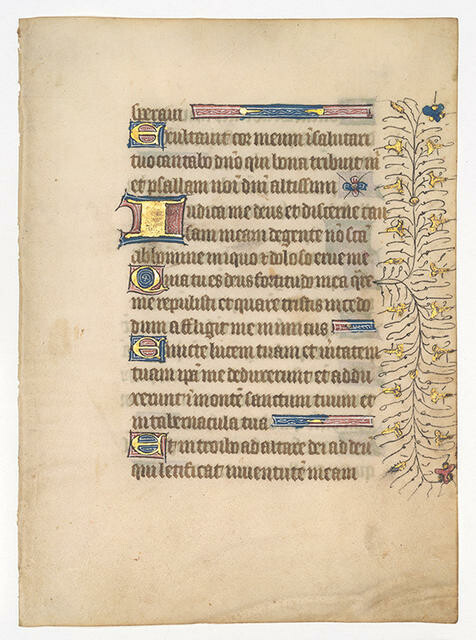 speraui
Exultauit cor meum ī salutari
tuo cantabo dn̄o qui bona tribuit m̄
et psallam noī dn̄i altissimi
Iudica me deus et discerne cau
sam meam de gente nō scā
ab homine iniquo ⁊ doloso erue me
Quia tu es deus fortitudo mea qre
me repulisti et quare tristis incedo
dum affligit me inimicus
Emitte lucem tuam et ūitatem
tuam ipā me deduxerunt et addu
xerunt ī montē sanctum tuum et
in tabernacula tua
Et introibo ad altare dei ad deū
qui letificat iuuentutē meam